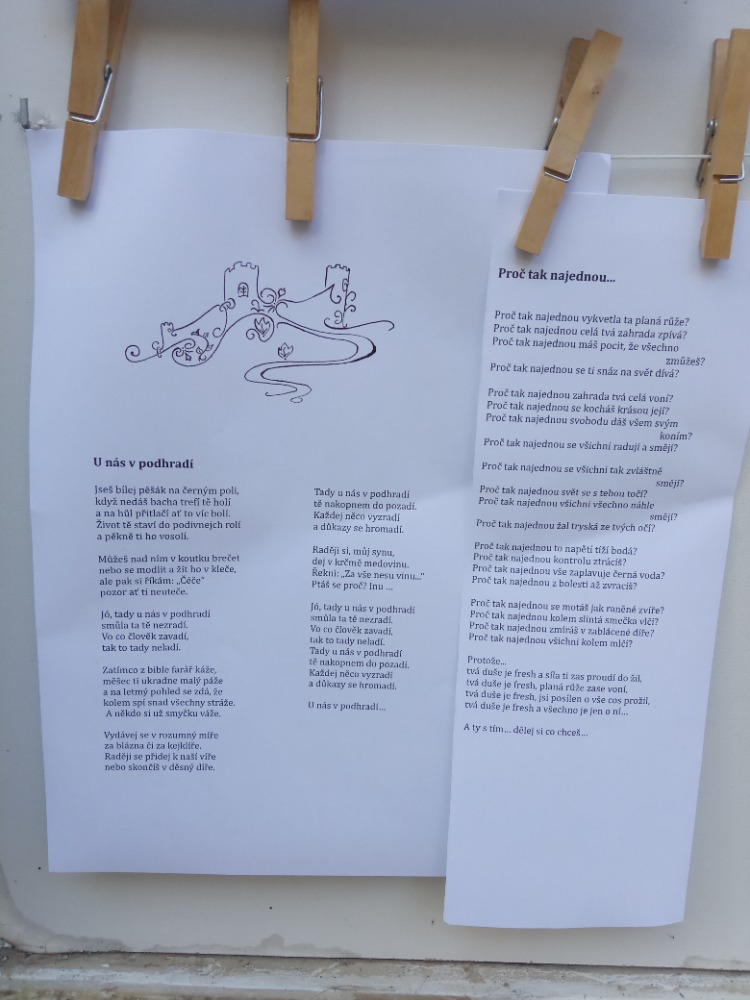 U nás v podhradí
Jseš bílej pěšák na černým poli,
když nedáš bacha trefí tě holí
a na hůl přitlačí ať to víc bolí.
Život tě staví do podivnejch rolí
a pěkně ti ho vosolí.
Můžeš nad ním v koutku brečet
nebo se modlit a žít ho v kleče,
ale pak si říkám: „Čéče“
pozor ať ti neuteče.
Jó, tady u nás v podhradí
smůla ta tě nezradí.
Vo co člověk zavadí,
tak to tady neladí.
Zatímco z bible farář káže,
měšec ti ukradne malý páže
a na letmý pohled se zdá, že
kolem spí snad všechny stráže.
A někdo si už smyčku váže.
Vydávej se v rozumný míře
za blázna či za kejklíře.
Raději se přidej k naší víře
nebo skončíš v děsný díře.
Tady u nás v podhradí
tě nakopnem do pozadí.
Každej něco vyzradí
a důkazy se hromadí.
Raději si, můj synu,
dej v krčmě medovinu.
Řekni: „Za vše nesu vinu...“
Ptáš se proč? Inu ...
Jó, tady u nás v podhradí
smůla ta tě nezradí.
Vo co člověk zavadí,
tak to tady neladí.
Tady u nás v podhradí
tě nakopnem do pozadí.
Každej něco vyzradí
a důkazy se hromadí.
U nás v podhradí...
Proč tak najednou...
Proč tak najednou vykvetla ta planá růže?
Proč tak najednou celá tvá zahrada zpívá?
Proč tak najednou máš pocit, že všechno
zmůžeš?
Proč tak najednou se ti snáz na svět dívá?
Proč tak najednou zahrada tvá celá voní?
Proč tak najednou se kocháš krásou její?
Proč tak najednou svobodu dáš všem svým
koním?
Proč tak najednou se všichni radují a smějí?
Proč tak najednou se všichni tak zvláštně
smějí?
Proč tak najednou svět se s tebou točí?
Proč tak najednou všichni všechno náhle
smějí?
Proč tak najednou žal tryská ze tvých očí?
Proč tak najednou to napětí tíží bodá?
Proč tak najednou kontrolu ztrácíš?
Proč tak najednou vše zaplavuje černá voda?
Proč tak najednou z bolesti až zvracíš?
Proč tak najednou se motáš jak raněné zvíře?
Proč tak najednou kolem slintá smečka vlčí?
Proč tak najednou zmíráš v zablácené díře?
Proč tak najednou všichni kolem mlčí?
Protože...
tvá duše je fresh a síla ti zas proudí do žil,
tvá duše je fresh, planá růže zase voní,
tvá duše je fresh, jsi posílen o vše cos prožil,
tvá duše je fresh a všechno je jen o ní...
A ty s tím... dělej si co chceš...